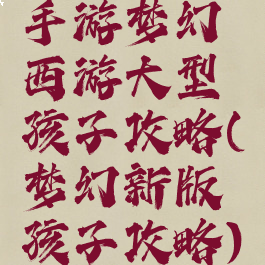 手游梦幻
西游大型
孩子攻略(
梦幻新版
孩子攻略)